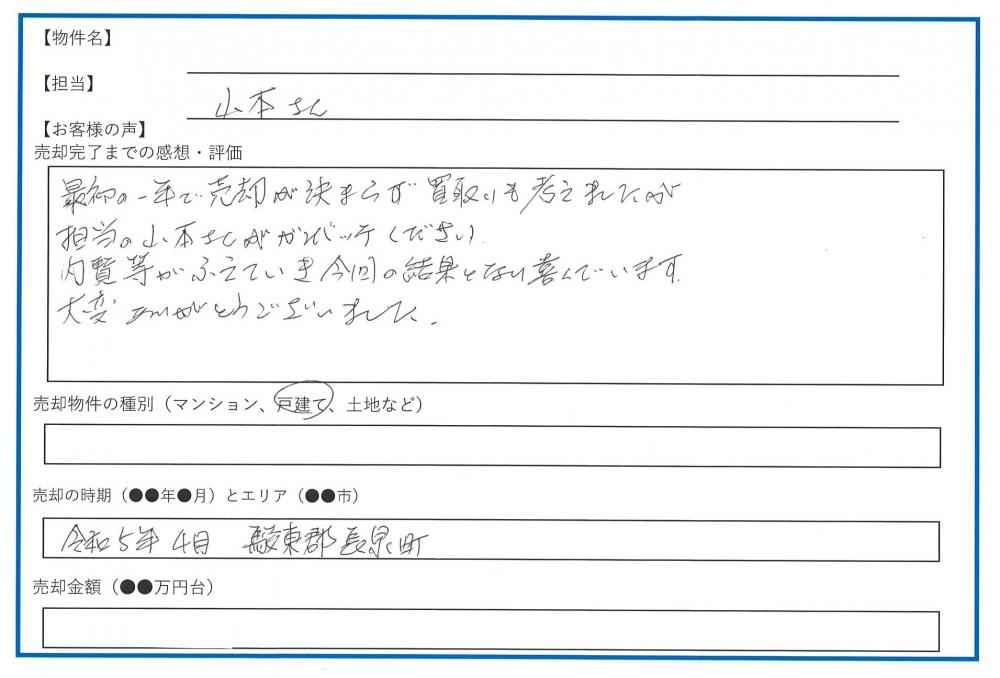 【物件名】
【担当】
山本さん
【お客様の声】
売却完了までの感想・評価
最初の一年で売却が決まらず買取りも考えましたが
担当の山本さんがガンバッテくださり
内覧等がふえていき今回の結果となり喜んでいます。
大変ありがとうございました。
売却物件の種別（マンション、戸建て、土地など）
売却の時期（●●年●月）とエリア（●●市）
令和5年4月 駿東郡長泉町
売却金額（●●万円台）